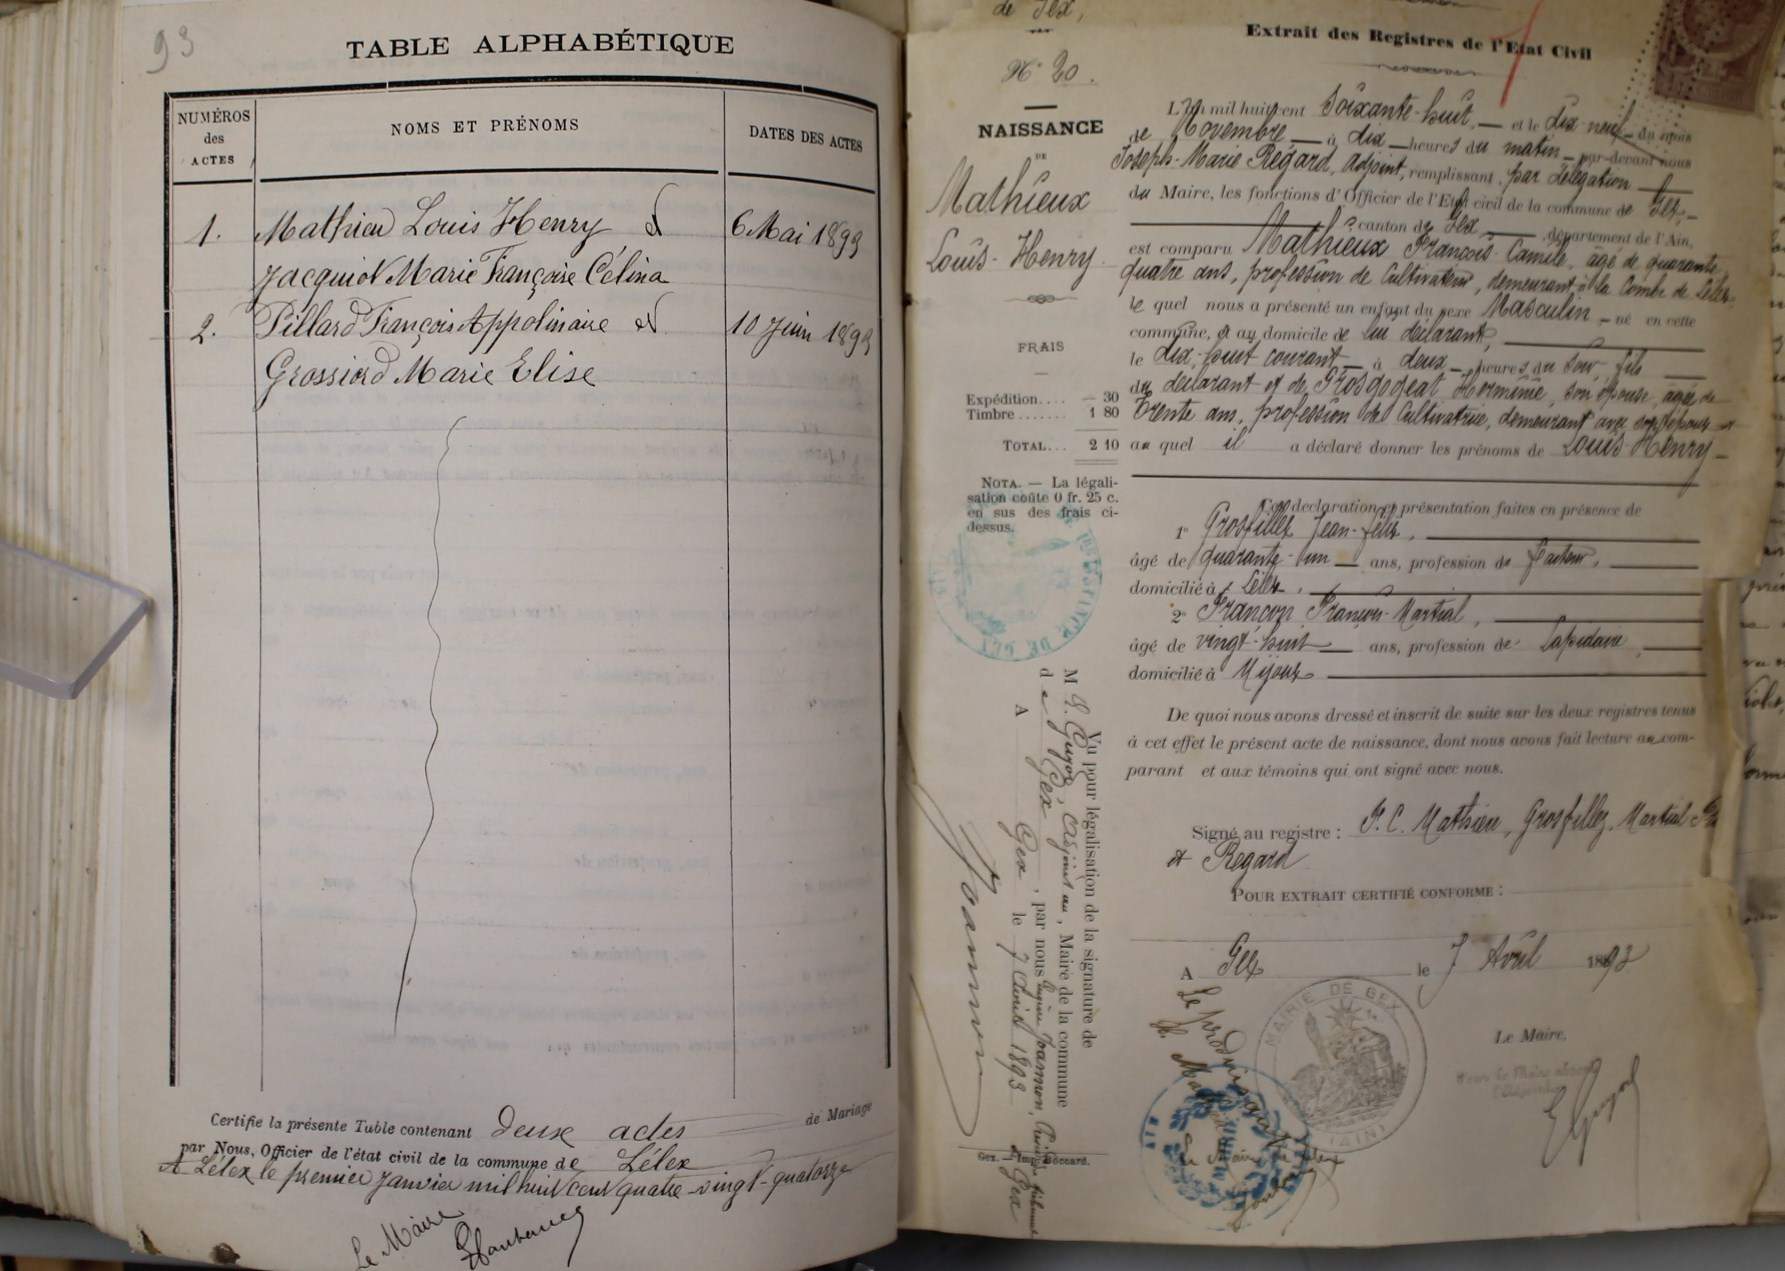 93
TABLE ALPHABÉTIQUE
NUMÉROS
des
ACTES
NOMS ET PRÉNOMS
DATES DES ACTES
1. Mathieu Louis Henry & 6 Mai 1893
Jacquiot Marie Françoise Célina
2. Pillard François Appolinaire et 10 Juin 1893
Grossiord Marie Elise
Certifie la présente Table contenant deux actes de Mariage
par Nous, Officier de l'état civil de la commune de Lélex
A Lélex le premier Janvier mil huit cent quatre-vingt-quatorze
Le Maire
de Gex,
N° 20.
NAISSANCE
DE
Mathieux
Louis-Henry
FRAIS
Expédition.... — 30
Timbre....... 1 80
TOTAL... 2 10
NOTA. — La légali-
sation coûte 0 fr. 25 c.
en sus des frais ci-
dessus.
Vu pour légalisation de la signature de
M , adjoint au, Maire de la commune
de Gex, par nous Joannon,
A Gex le 7 Avril 1893
Joannon
Gex. — Imp.
Extrait des Registres de l'Etat Civil
L'an mil huit cent Soixante-huit, — et le dix-neuf du mois
de Novembre, — à dix — heures du matin — par-devant nous
Joseph-Marie Regard, adjoint, remplissant, par délégation
du Maire, les fonctions d'Officier de l'Etat civil de la commune de Gex,
canton de Gex, département de l'Ain,
est comparu Mathieux François Camile, âgé de quarante
quatre ans, profession de Cultivateur, demeurant à la Combe de Lélex,
le quel nous a présenté un enfant du sexe Masculin — né en cette
commune, et au domicile de lui déclarant,
le dix-huit courant — à deux — heures du soir, fils
du déclarant et de Grosgogeat Herminie, son épouse, âgée de
trente ans, profession de Cultivatrice, demeurant avec son époux
au quel il a déclaré donner les prénoms de Louis-Henry —
Ces déclaration et présentation faites en présence de
1° Grosfillez Jean-Félix,
âgé de quarante-un — ans, profession de facteur,
domicilié à Lélex,
2° Françon François-Martial,
âgé de vingt-huit — ans, profession de Lapidaire,
domicilié à Mijoux
De quoi nous avons dressé et inscrit de suite sur les deux registres tenus
à cet effet le présent acte de naissance, dont nous avons fait lecture au com-
parant et aux témoins qui ont signé avec nous.
Signé au registre : F. C. Mathieu, Grosfillez, Martial
et Regard
POUR EXTRAIT CERTIFIÉ CONFORME :
A Gex le 7 Avril 1893
Le Maire,
MAIRIE DE GEX
(AIN)